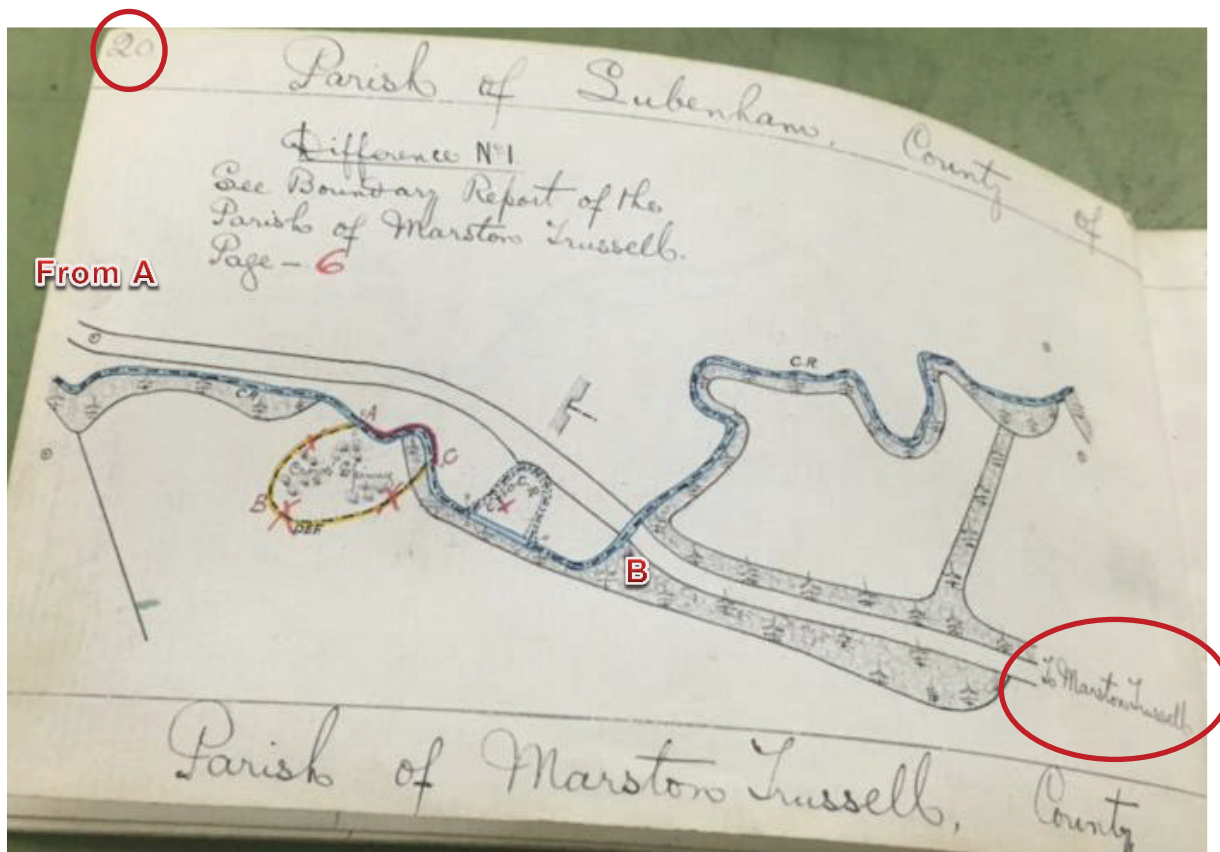 20
Parish of Lubenham, County of
Difference No 1
See Boundary Report of the
Parish of Marston Trussell.
Page - 6
From A
C.R
C.R
A
C
B
DEF.
C.R
B
To Marston Trussell
Parish of Marston Trussell, County